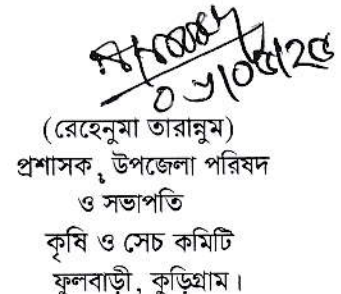 ০১/০৫/২৫
(রেহেনুমা তারান্নুম)
প্রশাসক, উপজেলা পরিষদ
ও সভাপতি
কৃষি ও সেচ কমিটি
ফুলবাড়ী, কুড়িগ্রাম।